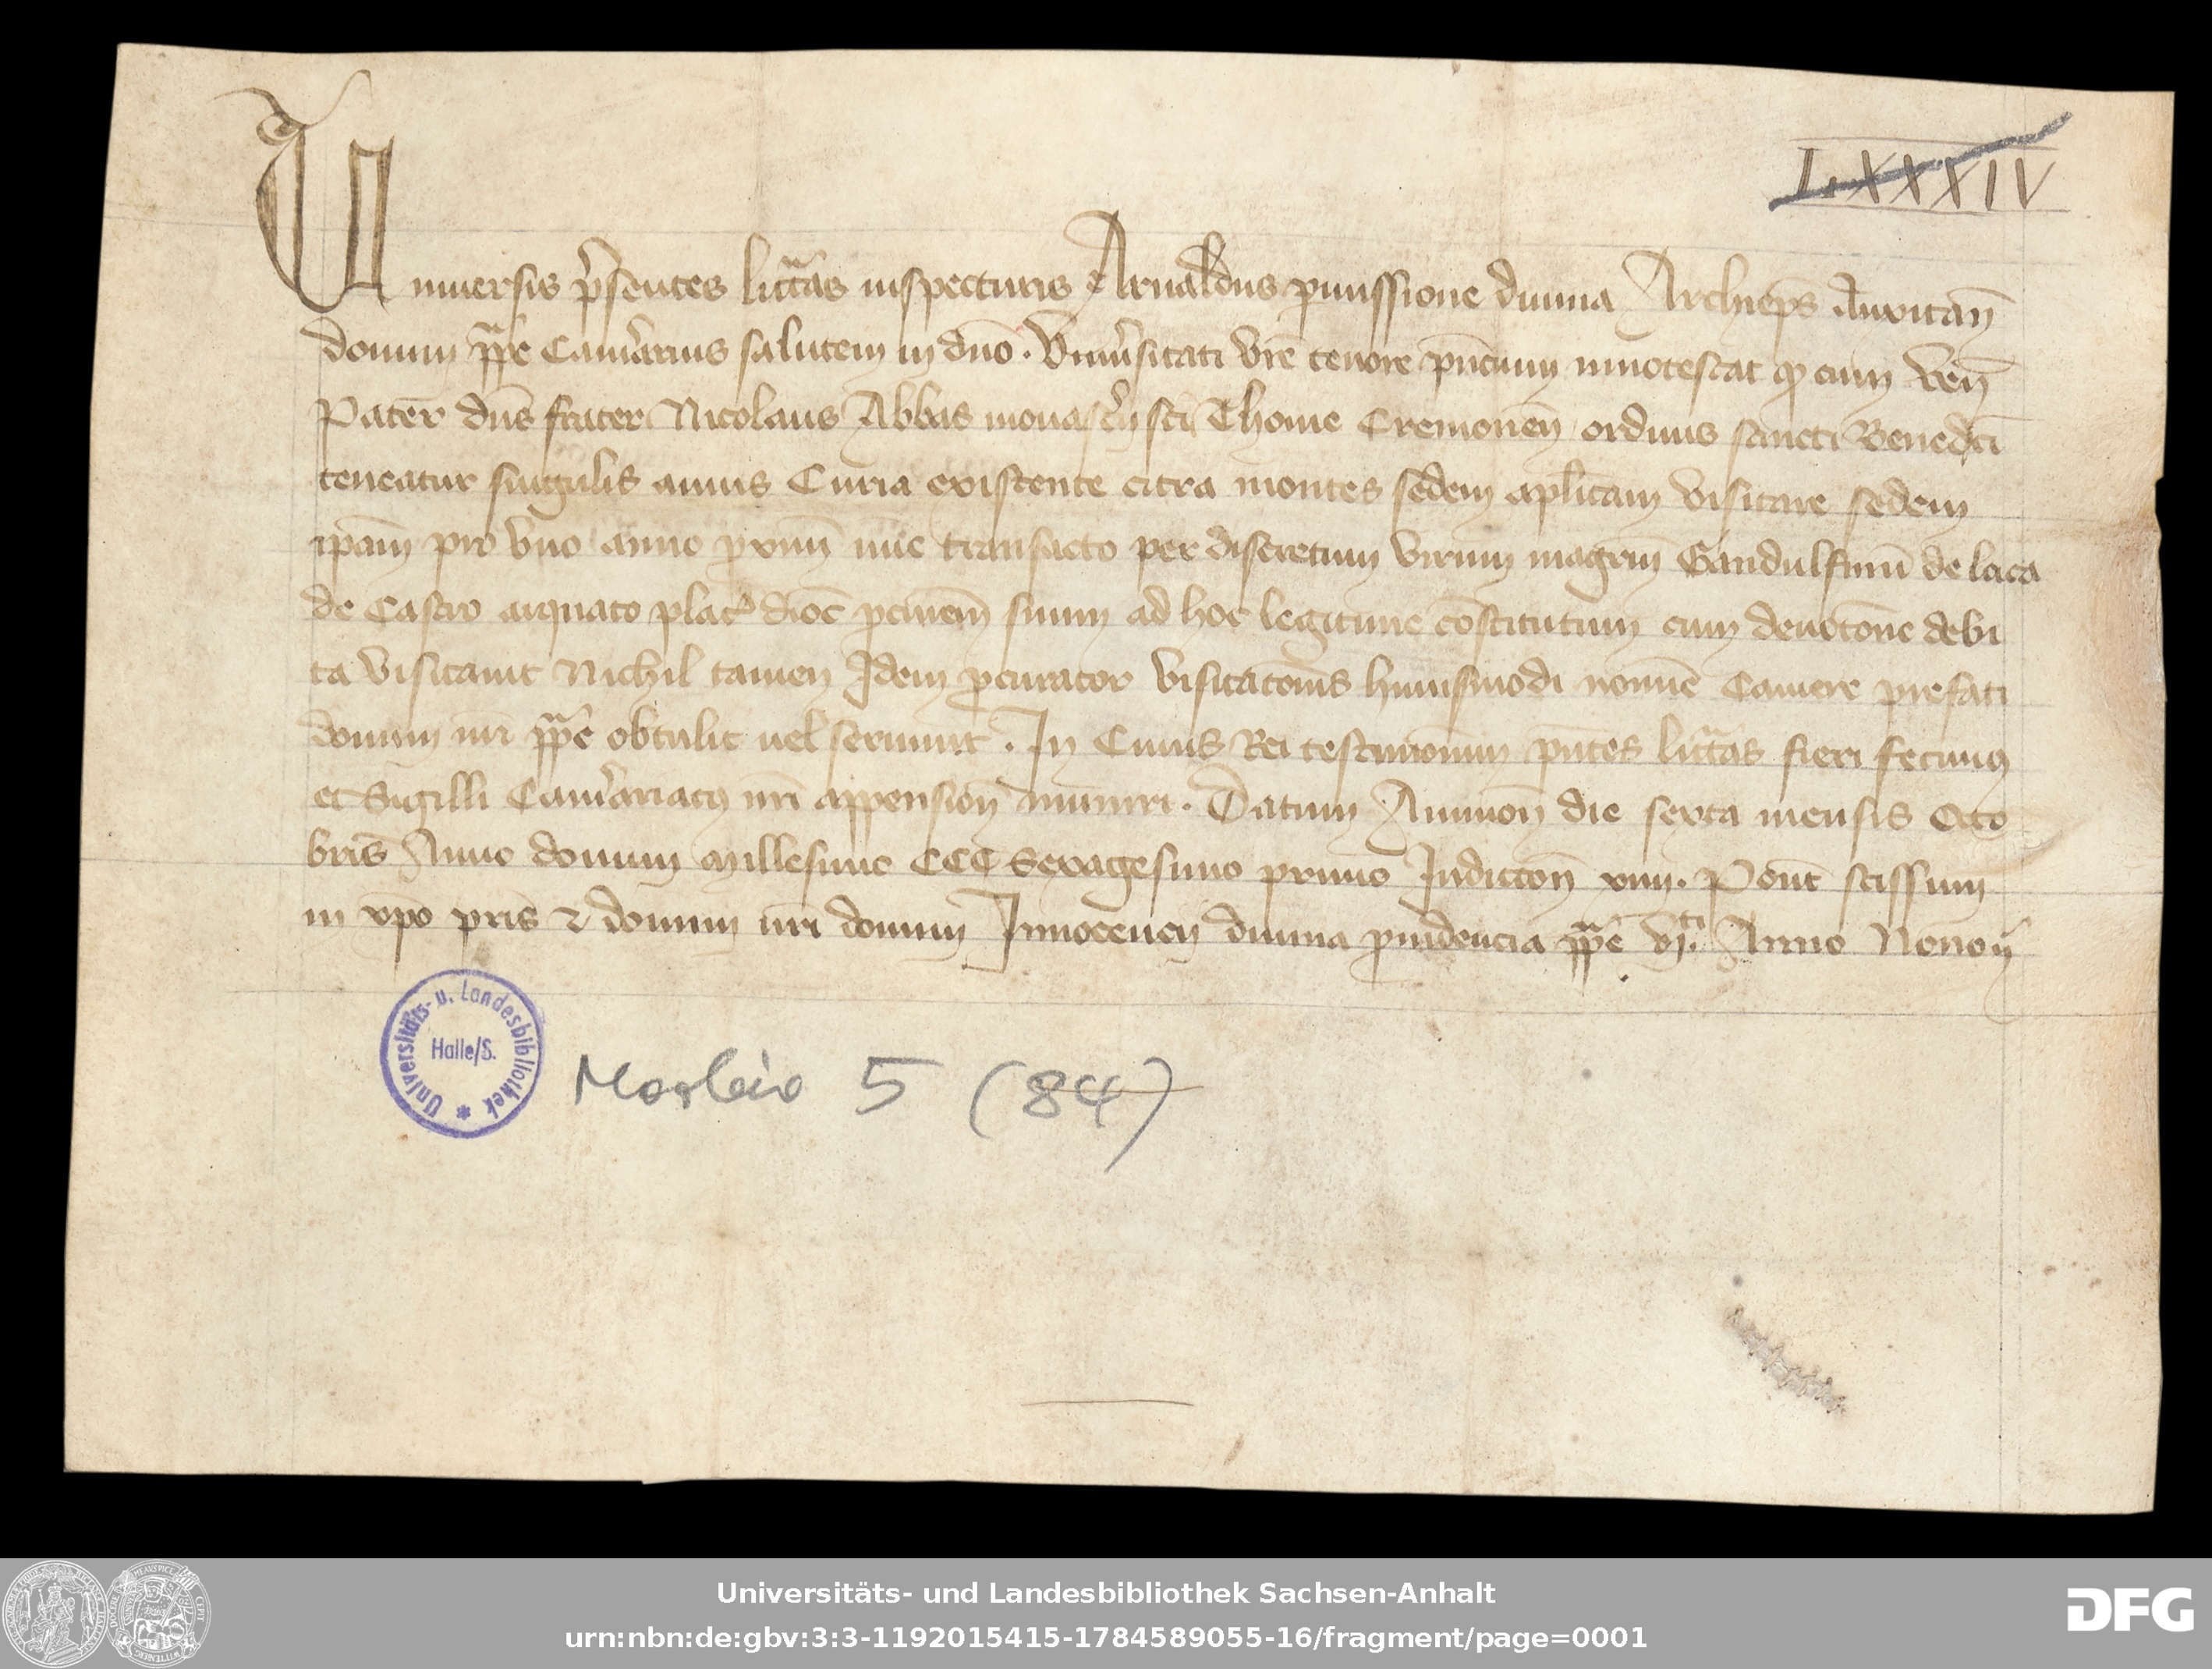 LXXXIV
Uniuersis p̃sentes litt̃as inspecturis Arnaldus p̱missione diuina Archiep̃s Auxitañ
domini pp̃e Cam̃arius salutem in dño. Vniu̾sitati vr̃e tenore p̃ncium innotescat q̃ cum Veñ
Pater dñs frater Nicolaus Abbas monast̾ij sc̃i Thome Cremoneñ ordinis sancti Benedc̃i
teneatur singulis annis Curia existente citra montes sedem apl̃icam visitare sedem
ip̃am pro vno anno p̱ximo nũc transacto per discretum virum magr̃m Gandulfinũ de laca
de Castro arquato plac̃ dioc̃ p̱c̃uem̃ suum ad hoc legitime cõstitutum cum deuoc̃one debi
ta visitauit Nichil tamen Idem p̱curator visitac̃onis huiusmodi nomĩe Camere prefati
domini nr̃i pp̃e obtulit uel seruiuit. In Cuius Rei testimonium p̃ntes litt̃as fieri fecimus
et Sigilli Cam̃ariatus nr̃i appensioñ muniri. Datum Auinioñ die sexta mensis Octo
bris Anno domini Millesimo CCC Sexagesimo primo Indicc̃oñ xiiij. Pont̃ sc̃issimi
in xp̃o pr̃is ⁊ domini nr̃i domini Innocencij diuina p̱uidencia pp̃e vjᵗⁱ. Anno Nono
Universitäts- u. Landesbibliothek
Halle/S.
Morbio 5 (84)
Universitäts- und Landesbibliothek Sachsen-Anhalt
urn:nbn:de:gbv:3:3-1192015415-1784589055-16/fragment/page=0001
DFG